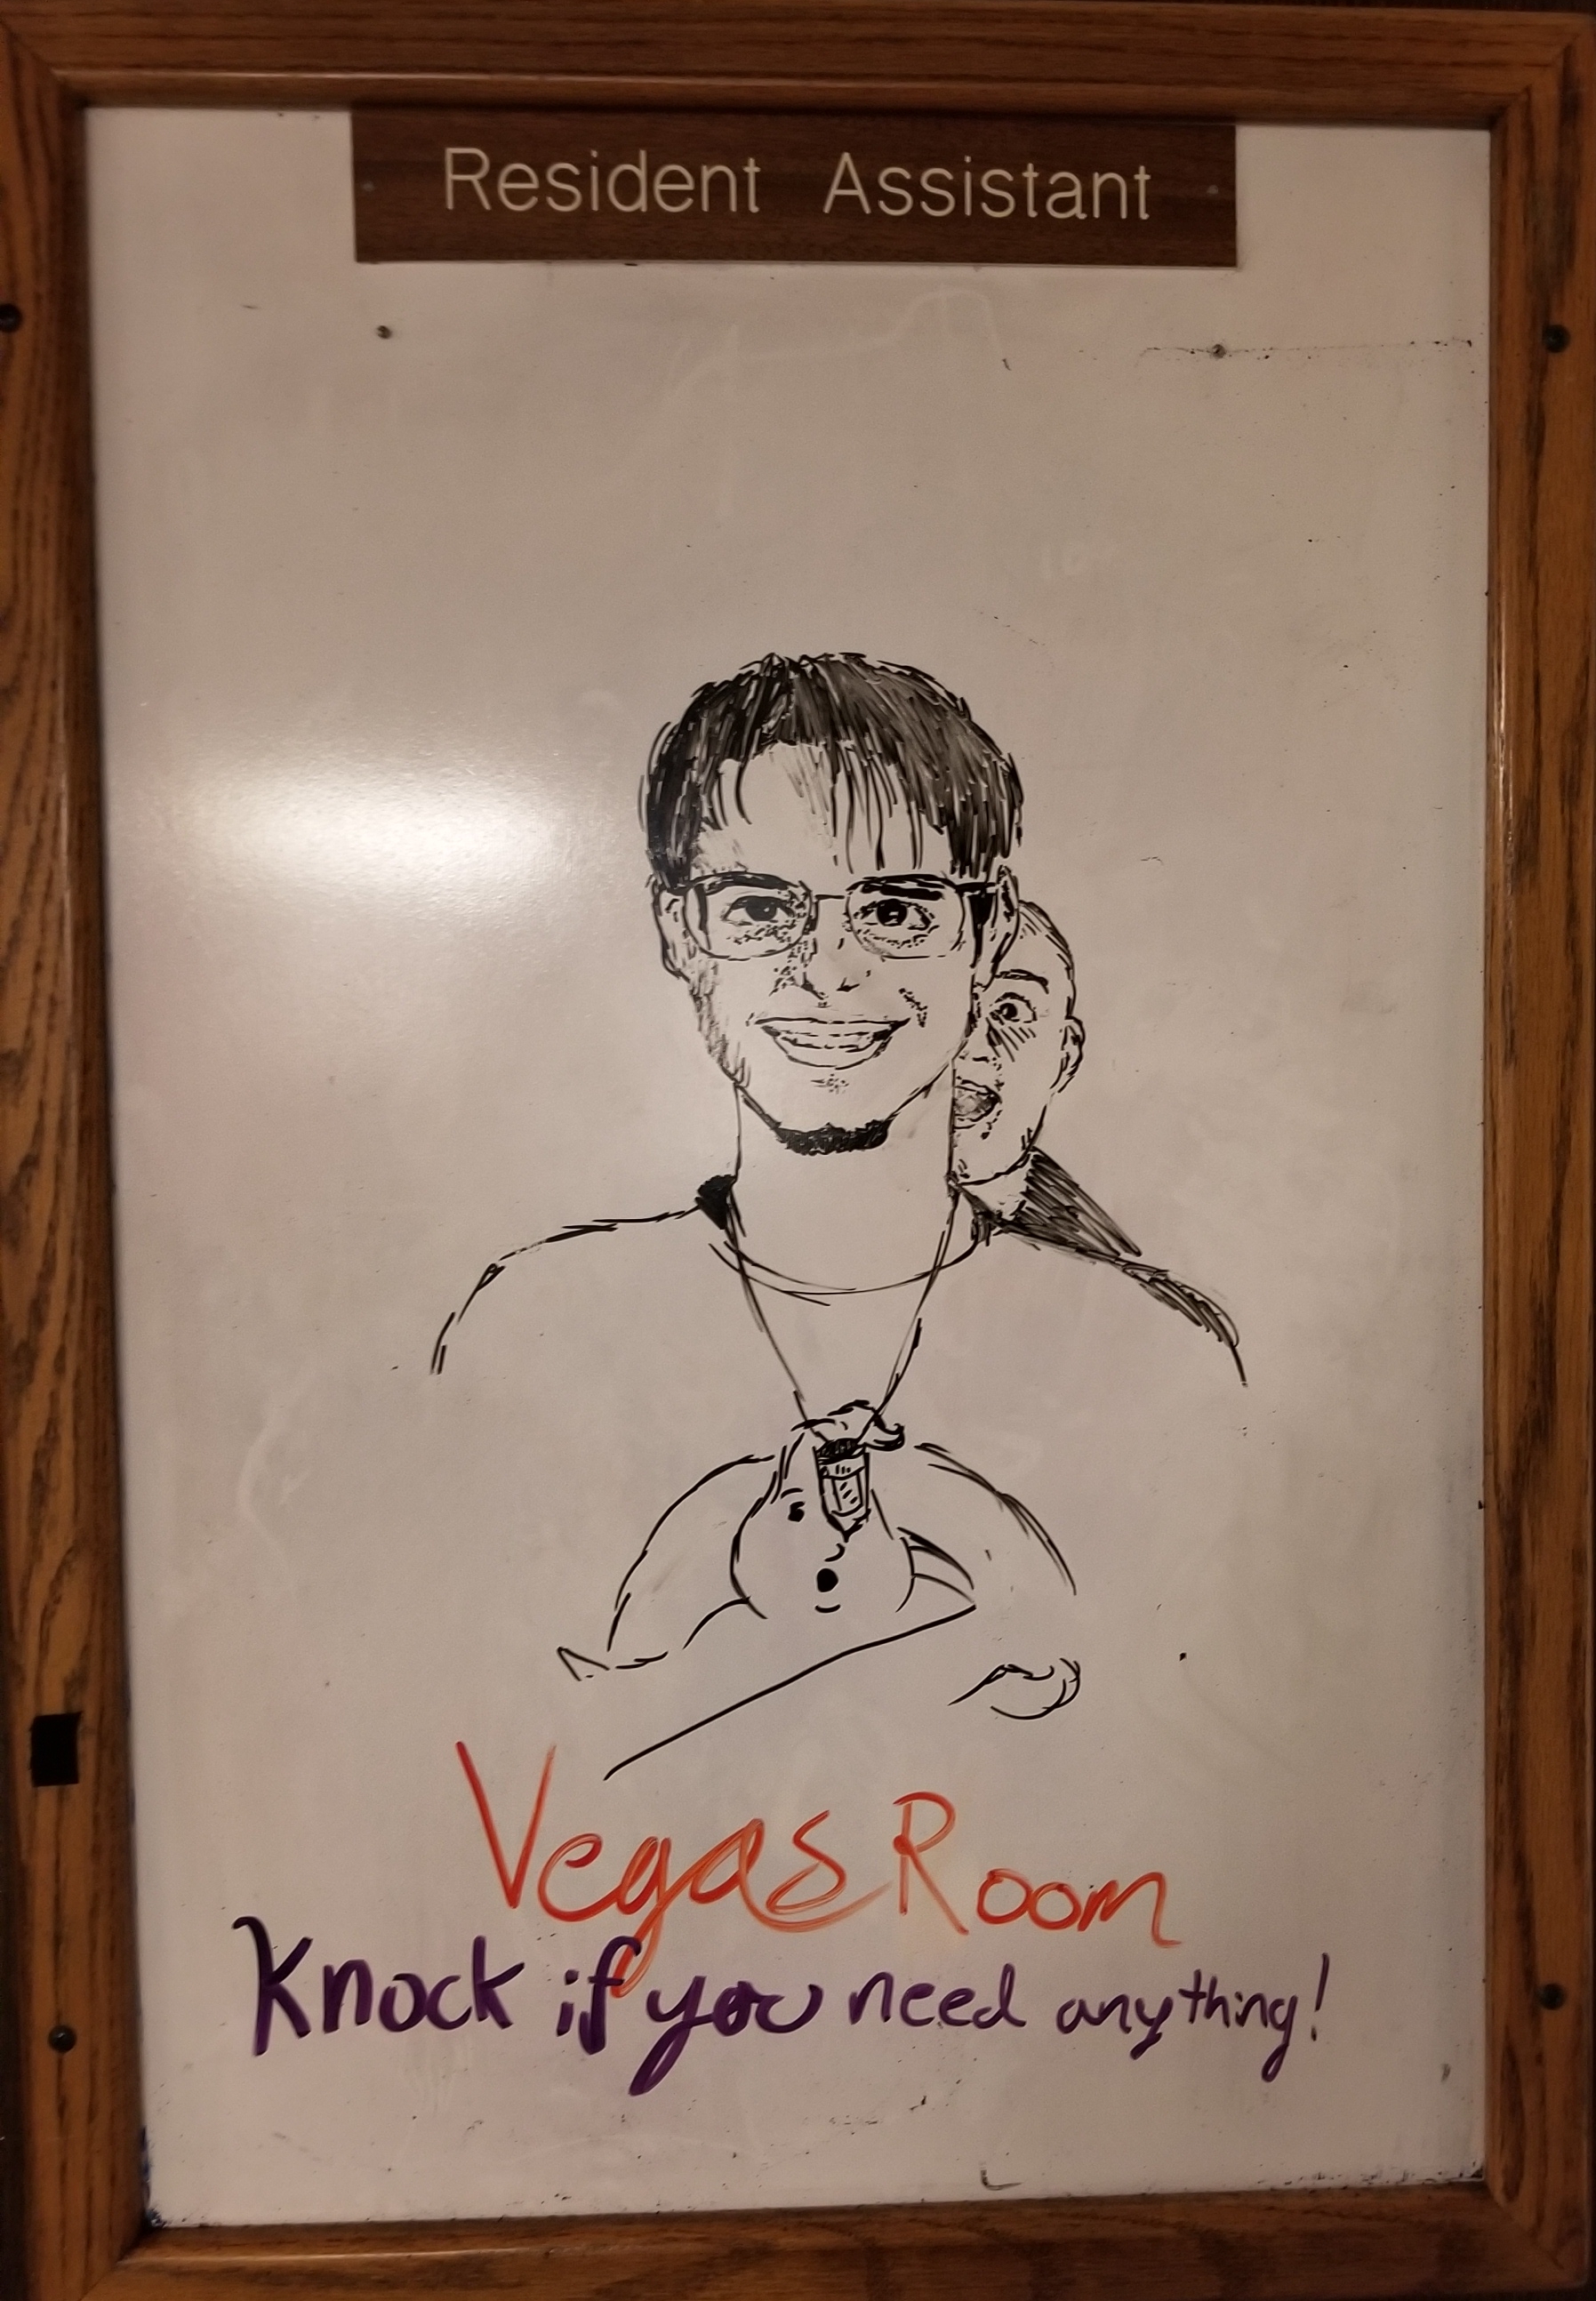 Resident Assistant
Vegas Room
Knock if you need anything!